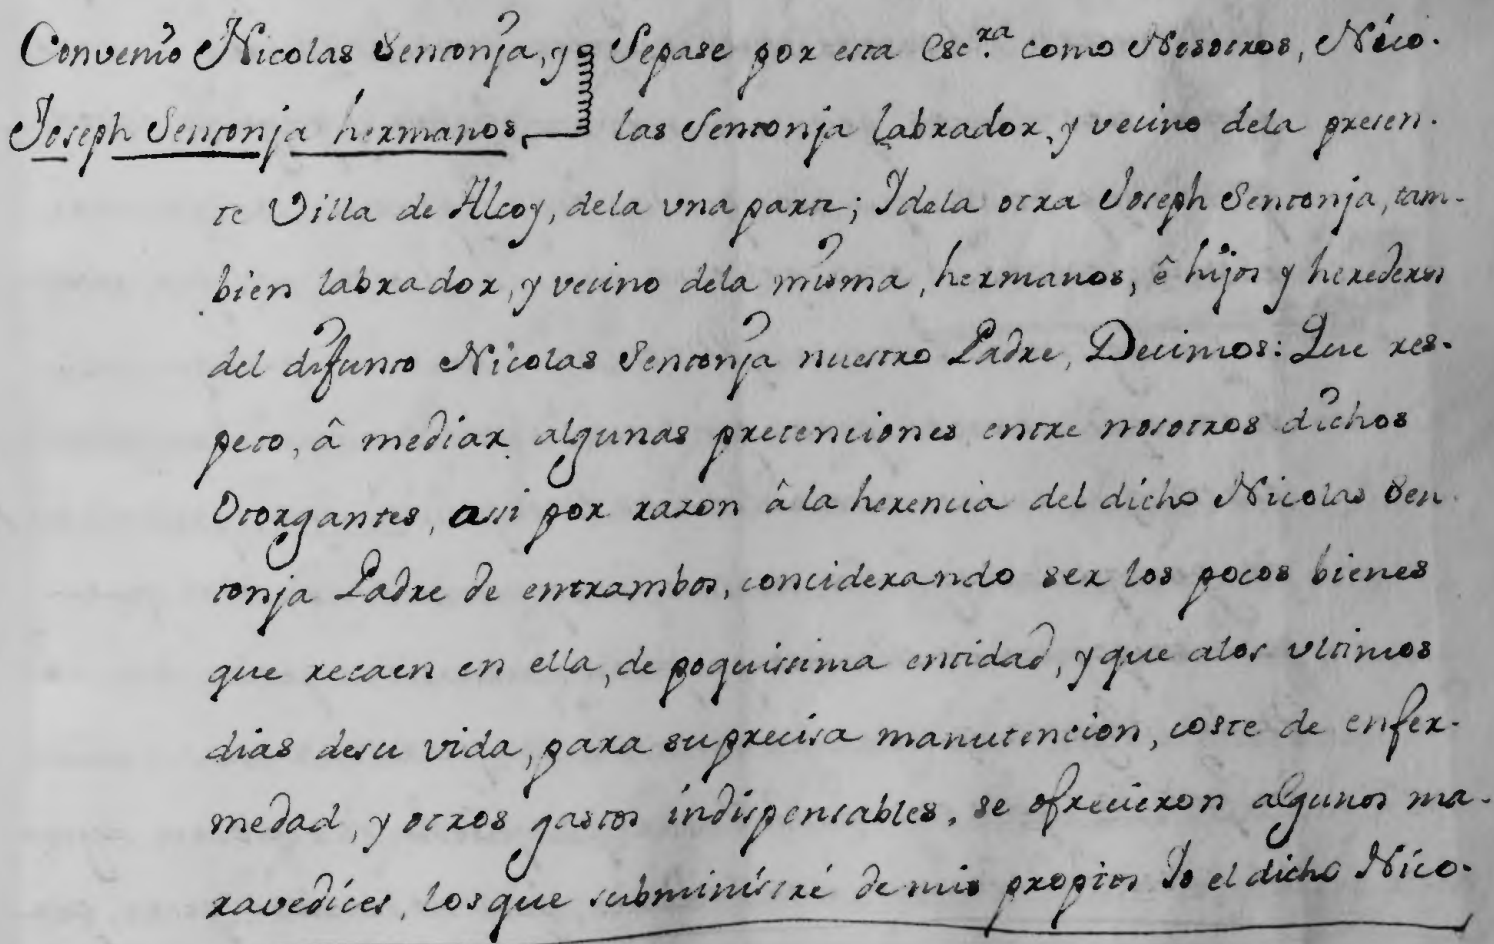 Convenio Nicolas Sentonja, y Sepase por esta Esc.ra como Nosotros, Nico-
Joseph Sentonja hermanos, las Sentonja labrador, y vecino dela presen-
te Villa de Alcoy, dela una parte; Y dela otra Joseph Sentonja, tam-
bien labrador, y vecino dela misma, hermanos, ê hijos y herederos
del difunto Nicolas Sentonja nuestro Padre, Decimos: Que res-
peto, â mediar algunas pretenciones entre nosotros dichos
Otorgantes, assi por razon â la herencia del dicho Nicolas Sen-
tonja Padre de entrambos, conciderando ser los pocos bienes
que recaen en ella, de poquissima entidad, y que alos ultimos
dias desu vida, para su precisa manutencion, coste de enfer-
medad, y otros gastos indispensables, se ofrecieron algunos ma-
ravedices, los que subministré de mis propios Yo el dicho Nico-